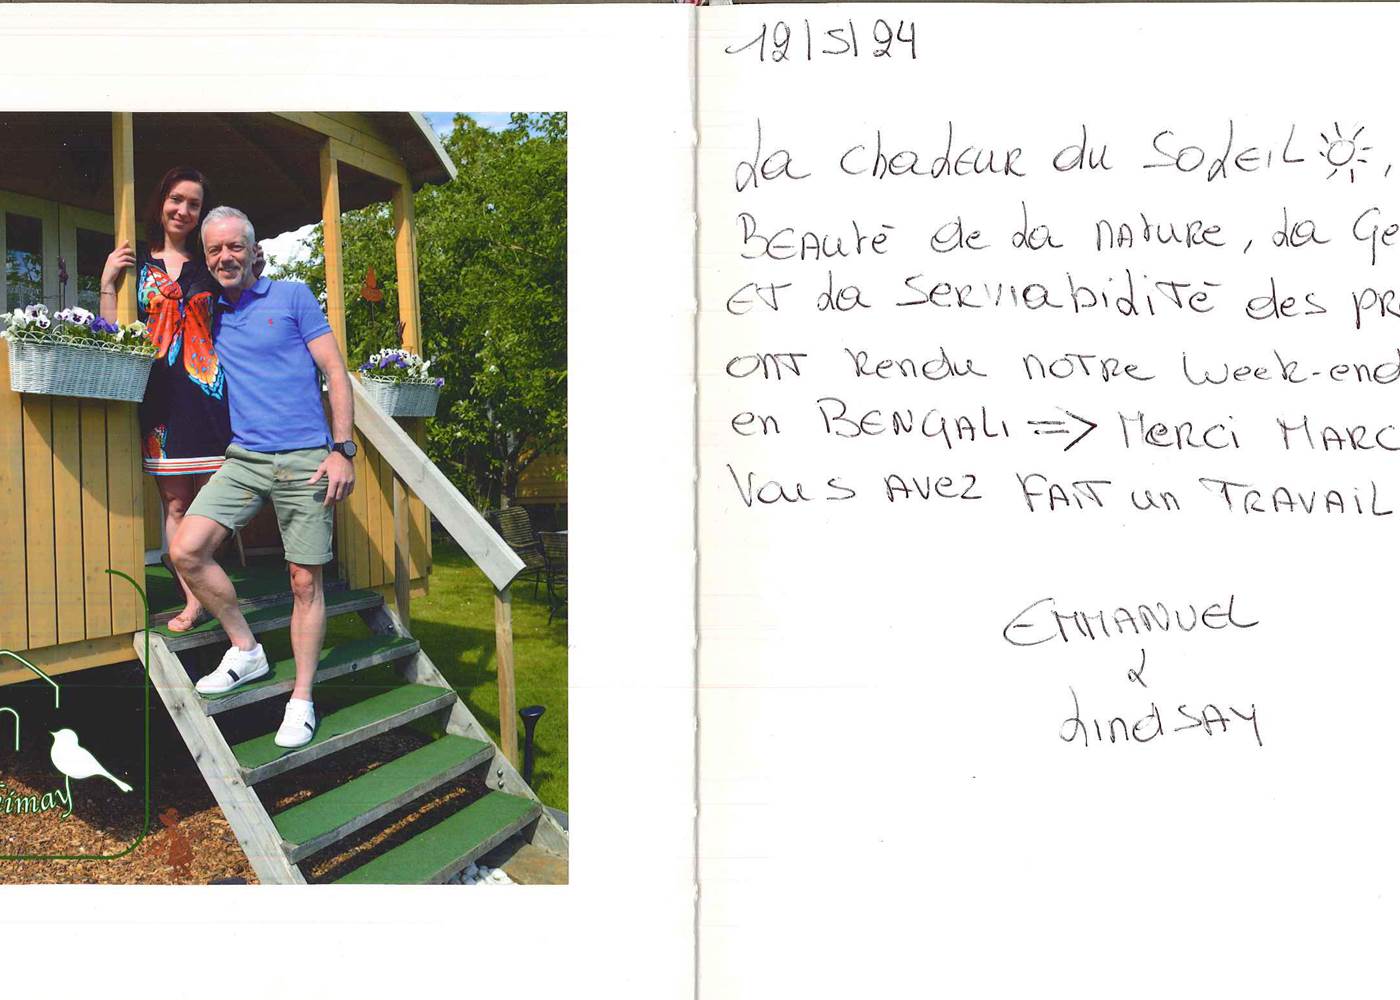 12/5/24
La chaleur du soleil ☀,
Beauté de la nature, la Ge
et la serviabilité des pr
ont rendu notre week-end
en Bengali => Merci Marc
Vous avez fait un travail
Emmanuel
&
Lindsay
imay